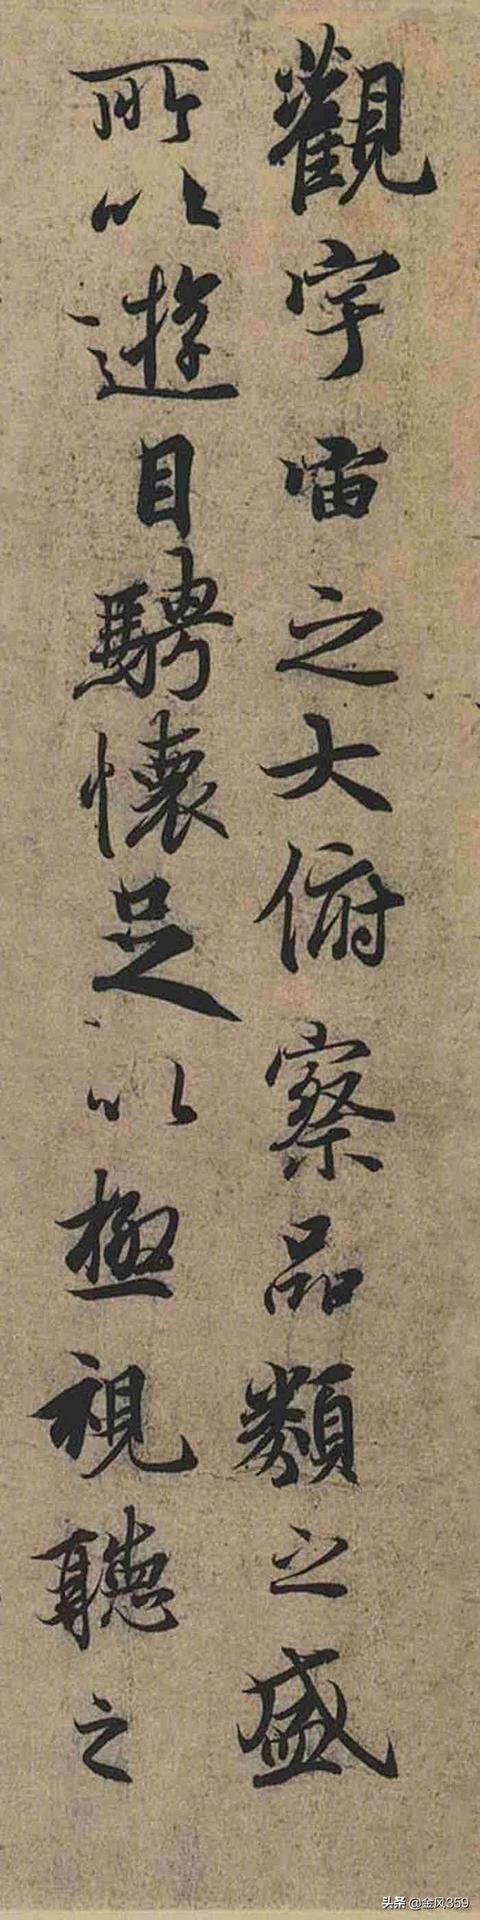 觀宇宙之大俯察品類之盛
所以遊目騁懷足以極視聽之
头条 @金风359